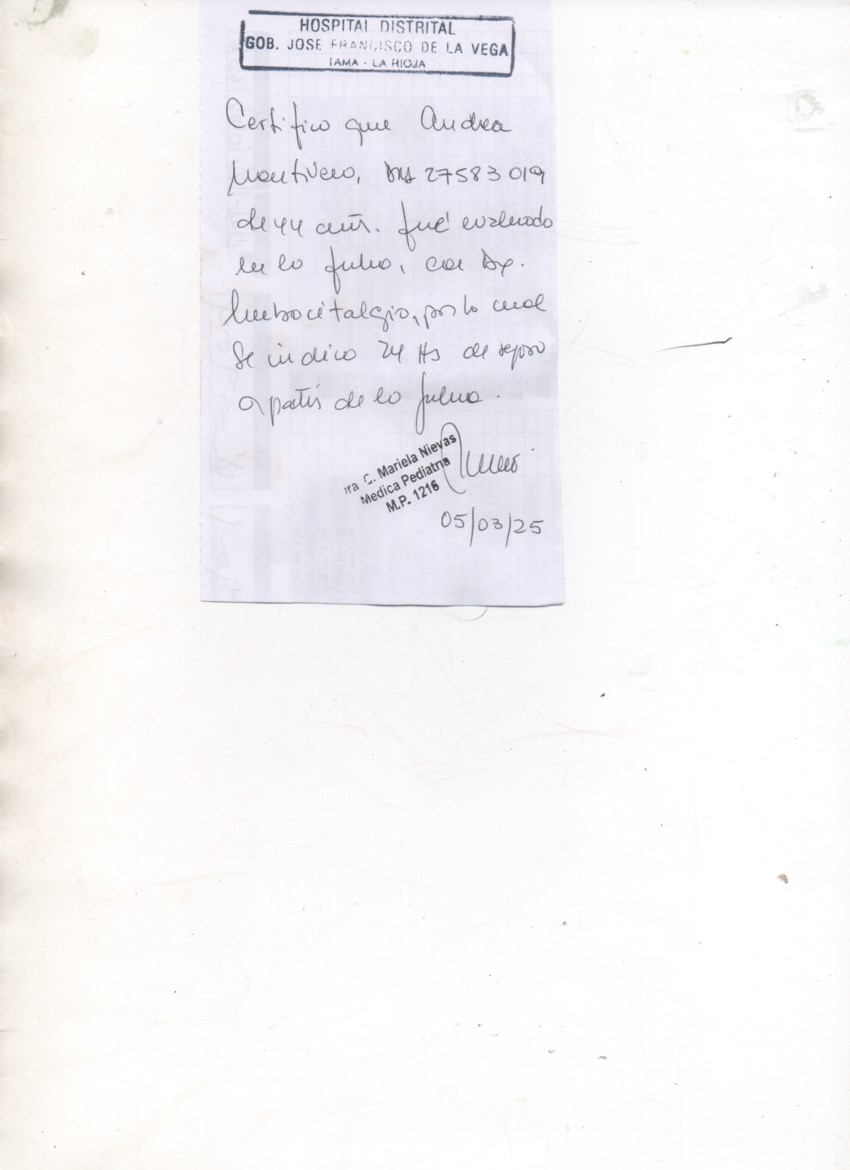 HOSPITAL DISTRITAL
GOB. JOSE FRANCISCO DE LA VEGA
TAMA - LA RIOJA
Certifico que Andrea
Montivero, DNI 27583019
de 44 años. fué evaluado
en la fecha, con Dx.
lumbociatalgia, por lo cual
se indica 24 Hs de reposo
a partir de la fecha.
Dra. C. Mariela Nievas
Medica Pediatria
M.P. 1216
05/03/25